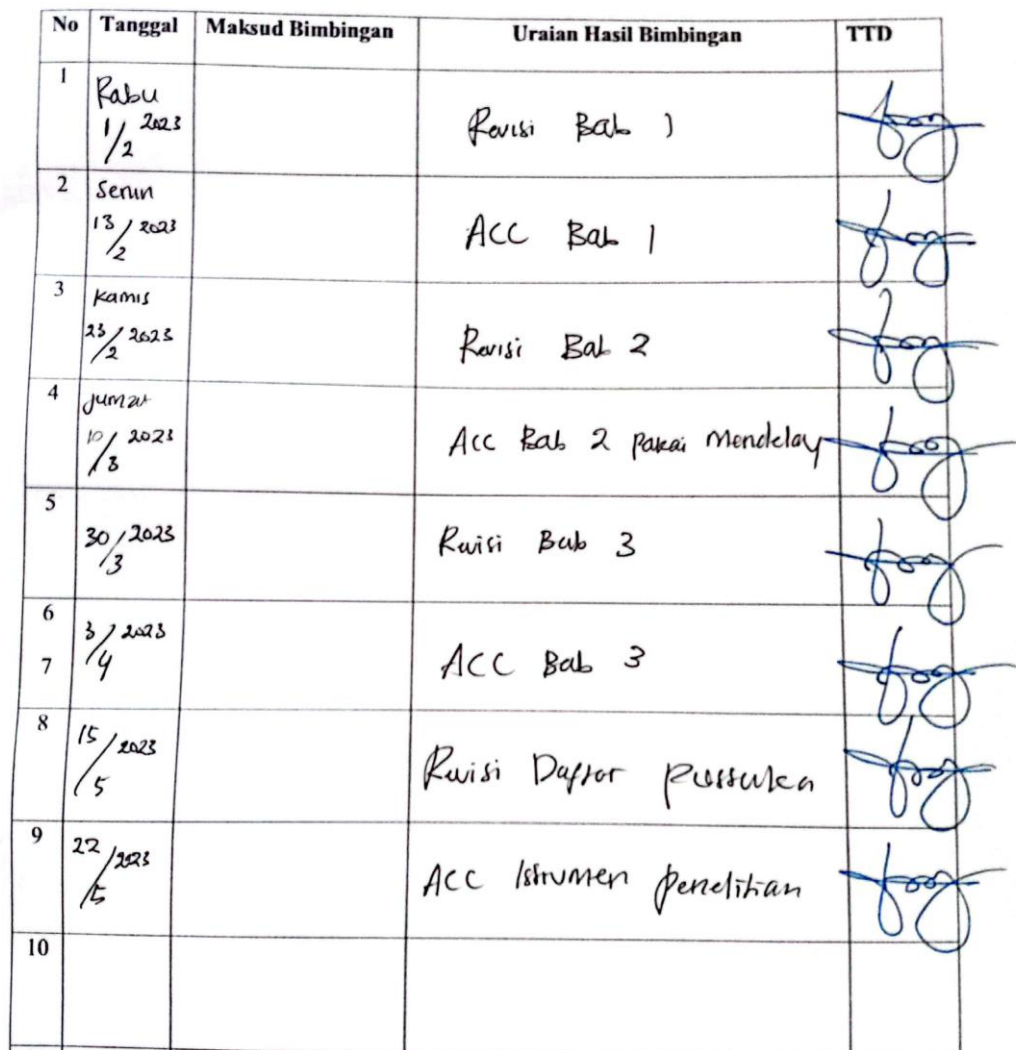 No Tanggal Maksud Bimbingan Uraian Hasil Bimbingan TTD
1 Rabu
1/2 2023 Revisi Bab 1
2 Senin
13/2 2023 ACC Bab 1
3 Kamis
23/2 2023 Revisi Bab 2
4 Jumat
10/3 2023 Acc Bab 2 pakai Mendelay
5
30/3 2023 Revisi Bab 3
6
3/4 2023 ACC Bab 3
7
8
15/5 2023 Revisi Daftar pustaka
9
22/5 2023 ACC Istrumen penelitian
10